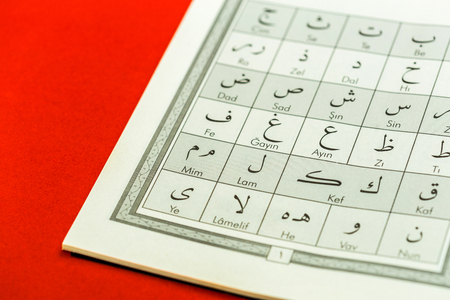 ب ت ث ج
Be Te Se Cim
خ د ذ ر ر
Hı Dal Zel Ra
س ش ص ض
Sin Şın Sad Dad
ط ظ ع غ ف
Zı Ayın Ğayın Fe
ق ك ل م م
Kaf Kef Lam Mim
ن و ه لا ى
Nun Vav He Lâmelif Ye
١